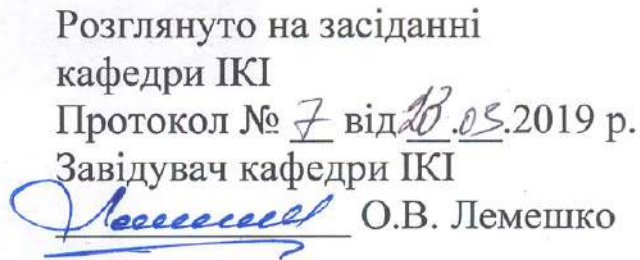 Розглянуто на засіданні
кафедри ІКІ
Протокол № 7 від .03.2019 р.
Завідувач кафедри ІКІ
О.В. Лемешко